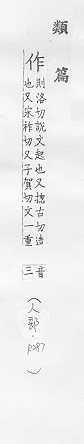 類篇
作
則洛切說文起也又摠古切造
也又宗祚切又子賀切文一重
音
三
(人部·p287)